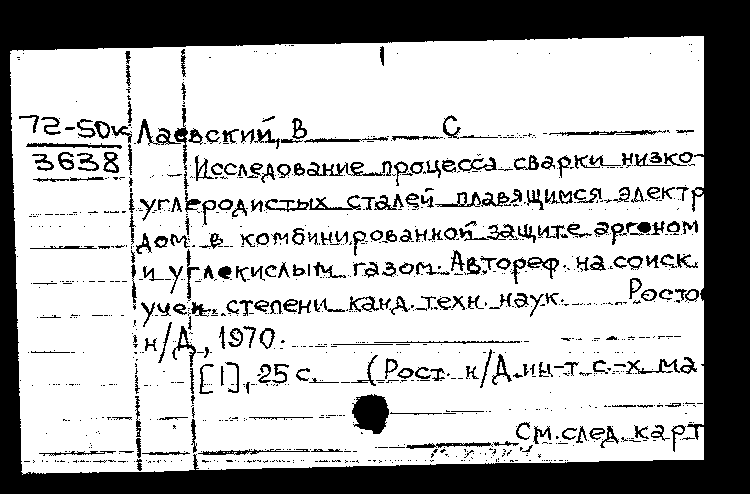 72-5Dк Лаевский, В С
3638 Исследование процесса сварки низко-
углеродистых сталей плавящимся электр
дом в комбинированной защите аргоном
и углекислым газом. Автореф. на соиск.
учен. степени канд. техн. наук. Росто
н/Д, 1970.
[1], 25 с. (Рост. н/Д. ин-т с.-х. ма-
См. след. карт